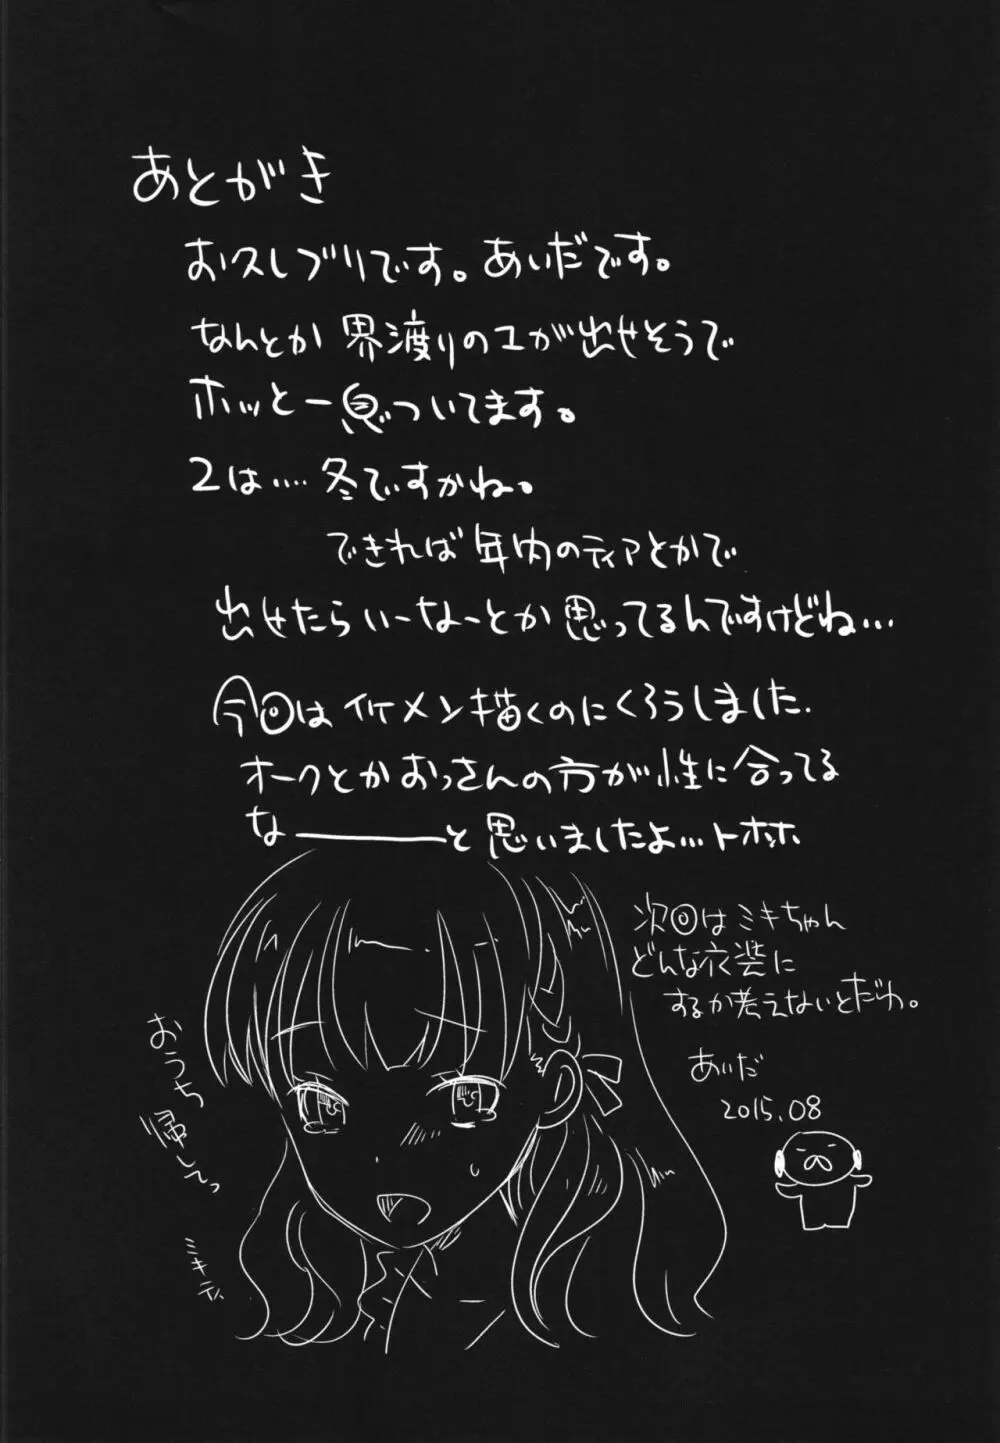 あとがき
お久しブリです。あいだです。
なんとか 界渡りの1が出せそうで
ホッと一息ついてます。
2は‥‥冬ですかね。
できれば年内のティアとかで
出せたらいーなーとか思ってるんですけどね…
今回はイケメン描くのにくろうしました.
オークとかおっさんの方が性に合ってる
な―――と思いましたよ…トホホ
次回はミキちゃん
どんな衣装に
するか考えないとだわ。
あいだ
2015.08
おうち
帰してっ
ミキティ